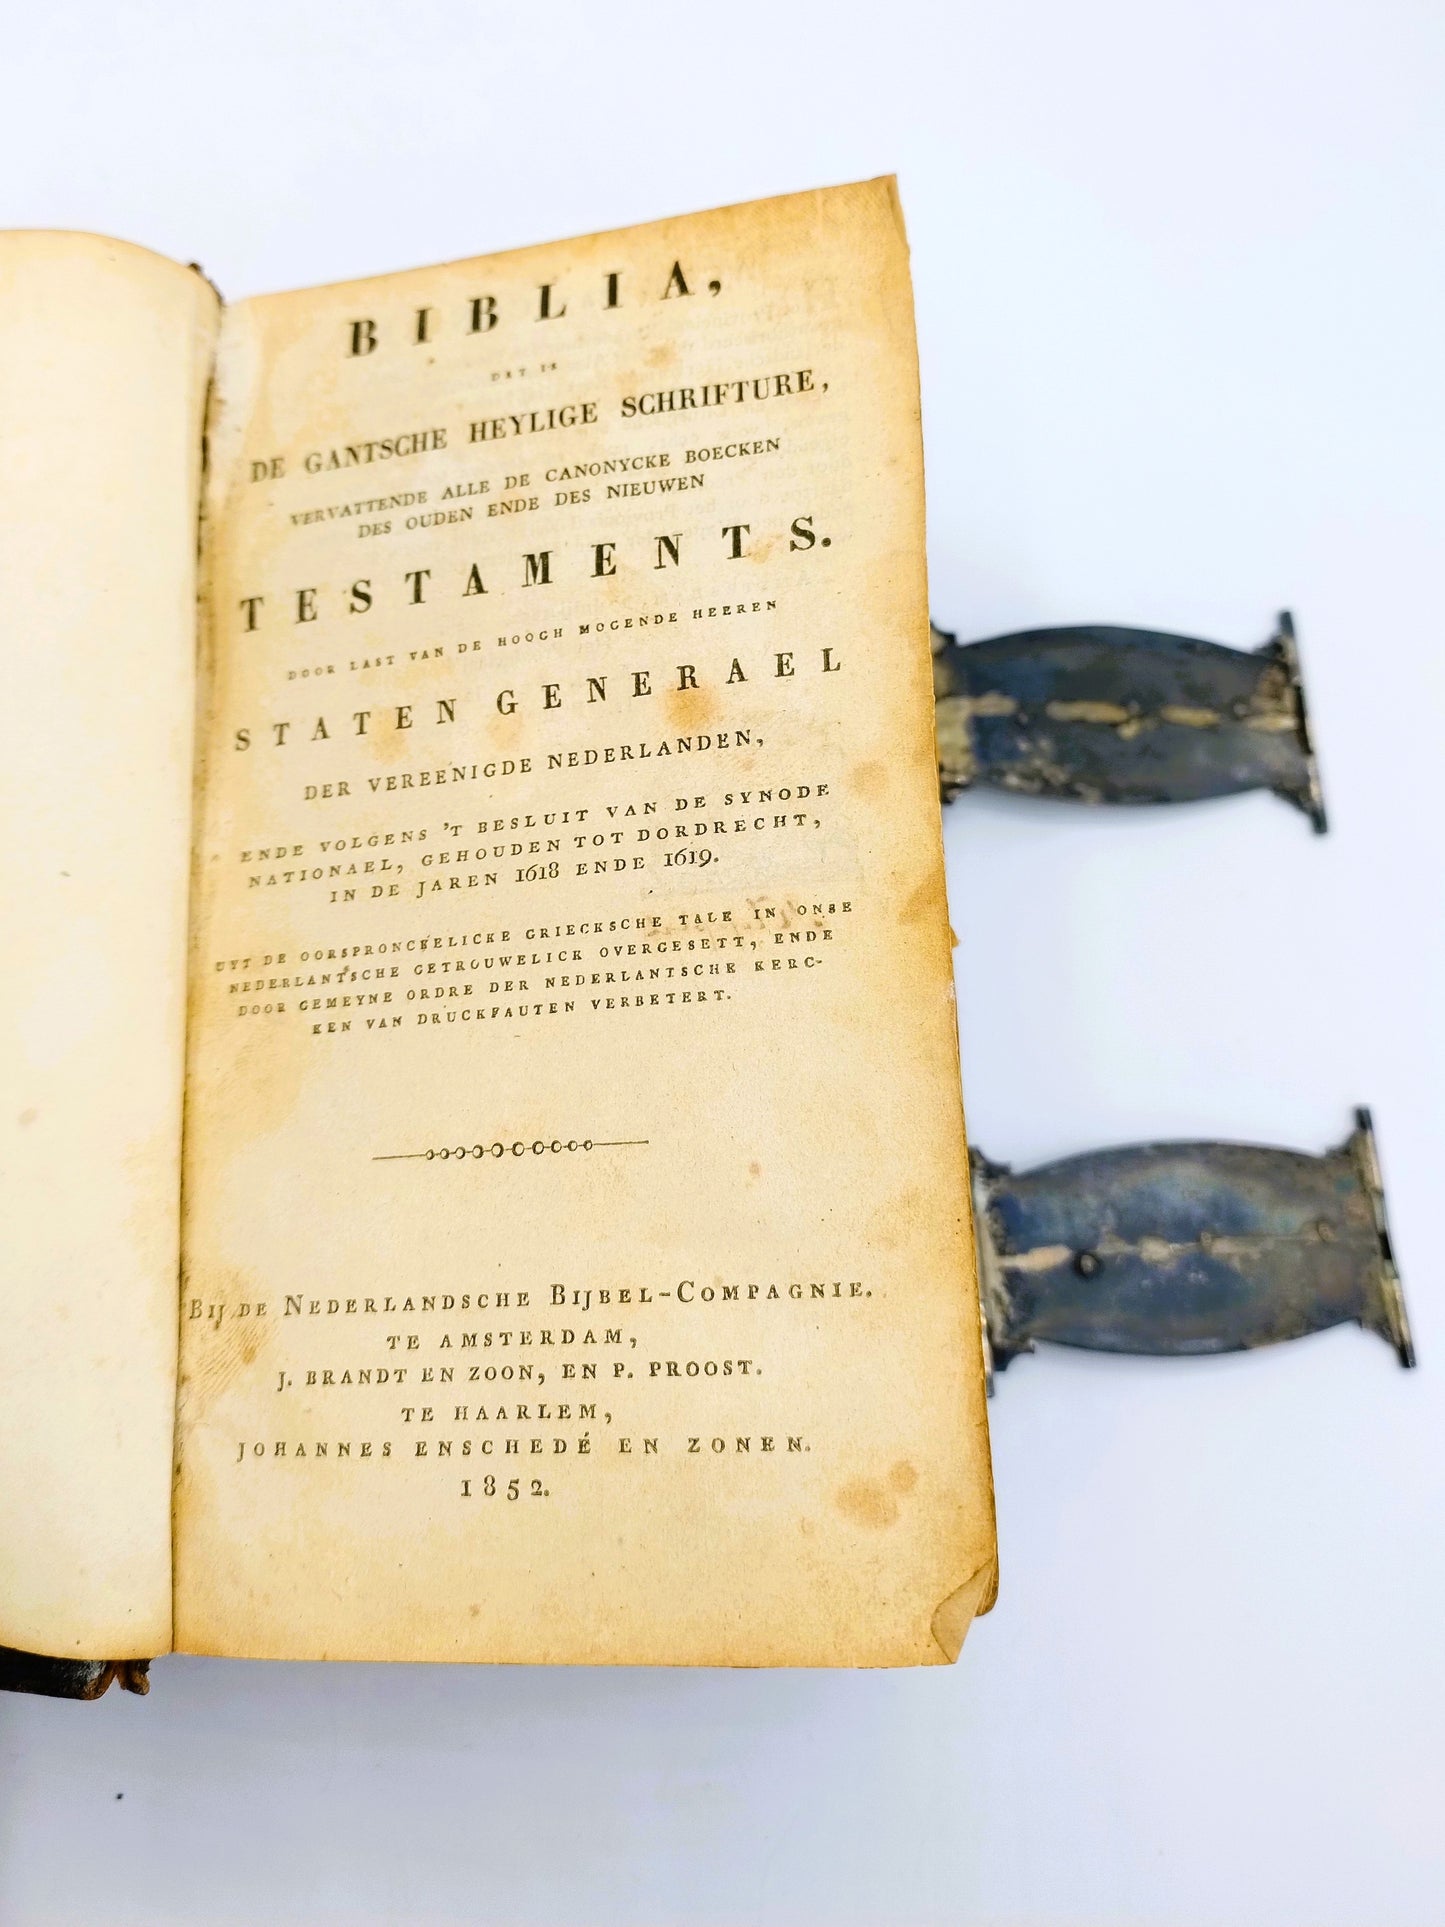 BIBLIA,
DAT IS
DE GANTSCHE HEYLIGE SCHRIFTURE,
VERVATTENDE ALLE DE CANONYCKE BOECKEN
DES OUDEN ENDE DES NIEUWEN
TESTAMENTS.
DOOR LAST VAN DE HOOGH MOGENDE HEEREN
STATEN GENERAEL
DER VEREENIGDE NEDERLANDEN,
ENDE VOLGENS 'T BESLUIT VAN DE SYNODE
NATIONAEL, GEHOUDEN TOT DORDRECHT,
IN DE JAREN 1618 ENDE 1619.
UYT DE OORSPRONCKELICKE GRIECKSCHE TALE IN ONSE
NEDERLANTSCHE GETROUWELICK OVERGESETT, ENDE
DOOR GEMEYNE ORDRE DER NEDERLANTSCHE KERC-
KEN VAN DRUCKFAUTEN VERBETERT.
BIJ DE NEDERLANDSCHE BIJBEL-COMPAGNIE.
TE AMSTERDAM,
J. BRANDT EN ZOON, EN P. PROOST.
TE HAARLEM,
JOHANNES ENSCHEDÉ EN ZONEN.
1852.